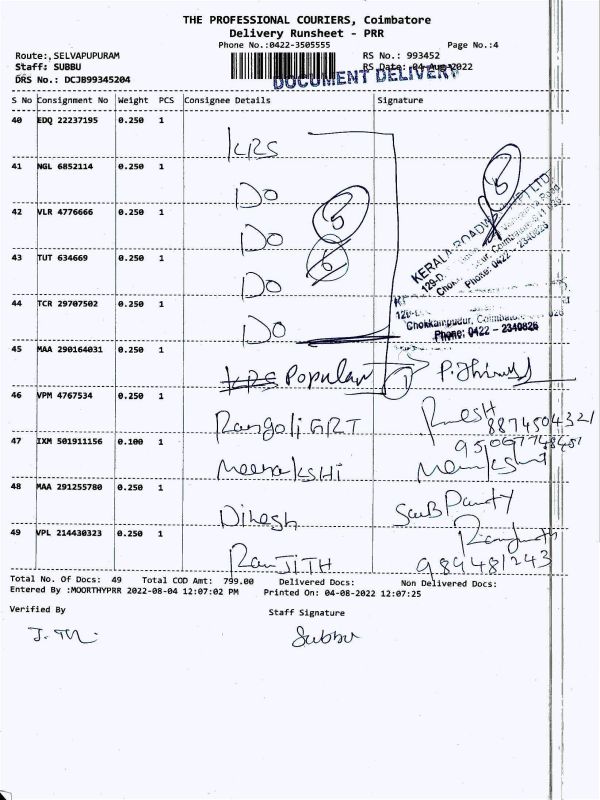 THE PROFESSIONAL COURIERS, Coimbatore
Delivery Runsheet - PRR
Phone No.:0422-3505555 Page No.:4
Route:,SELVAPUPURAM RS No.: 993452
Staff: SUBBU RS Date: 04-Aug-2022
DRS No.: DCJB99345204 DOCUMENT DELIVERY
S No Consignment No Weight PCS Consignee Details Signature
40 EDQ 22237195 0.250 1
KRS
41 NGL 6852114 0.250 1
Do
5
42 VLR 4776666 0.250 1
Do
43 TUT 634669 0.250 1
Do
KERALA ROADWAYS
44 TCR 29707502 0.250 1
Do
Chokkampudur, Coimbatore
Phone: 0422 - 2340826
45 MAA 290164031 0.250 1
KRS Popular 1
46 VPM 4767534 0.250 1
Rangoli ART 8874504321
47 IXM 501911156 0.100 1
Meenakshi
48 MAA 291255780 0.250 1
Dinesh
49 VPL 214430323 0.250 1
RanJITH 989481243
Total No. Of Docs: 49 Total COD Amt: 799.00 Delivered Docs: Non Delivered Docs:
Entered By :MOORTHYPRR 2022-08-04 12:07:02 PM Printed On: 04-08-2022 12:07:25
Verified By Staff Signature
Subbu